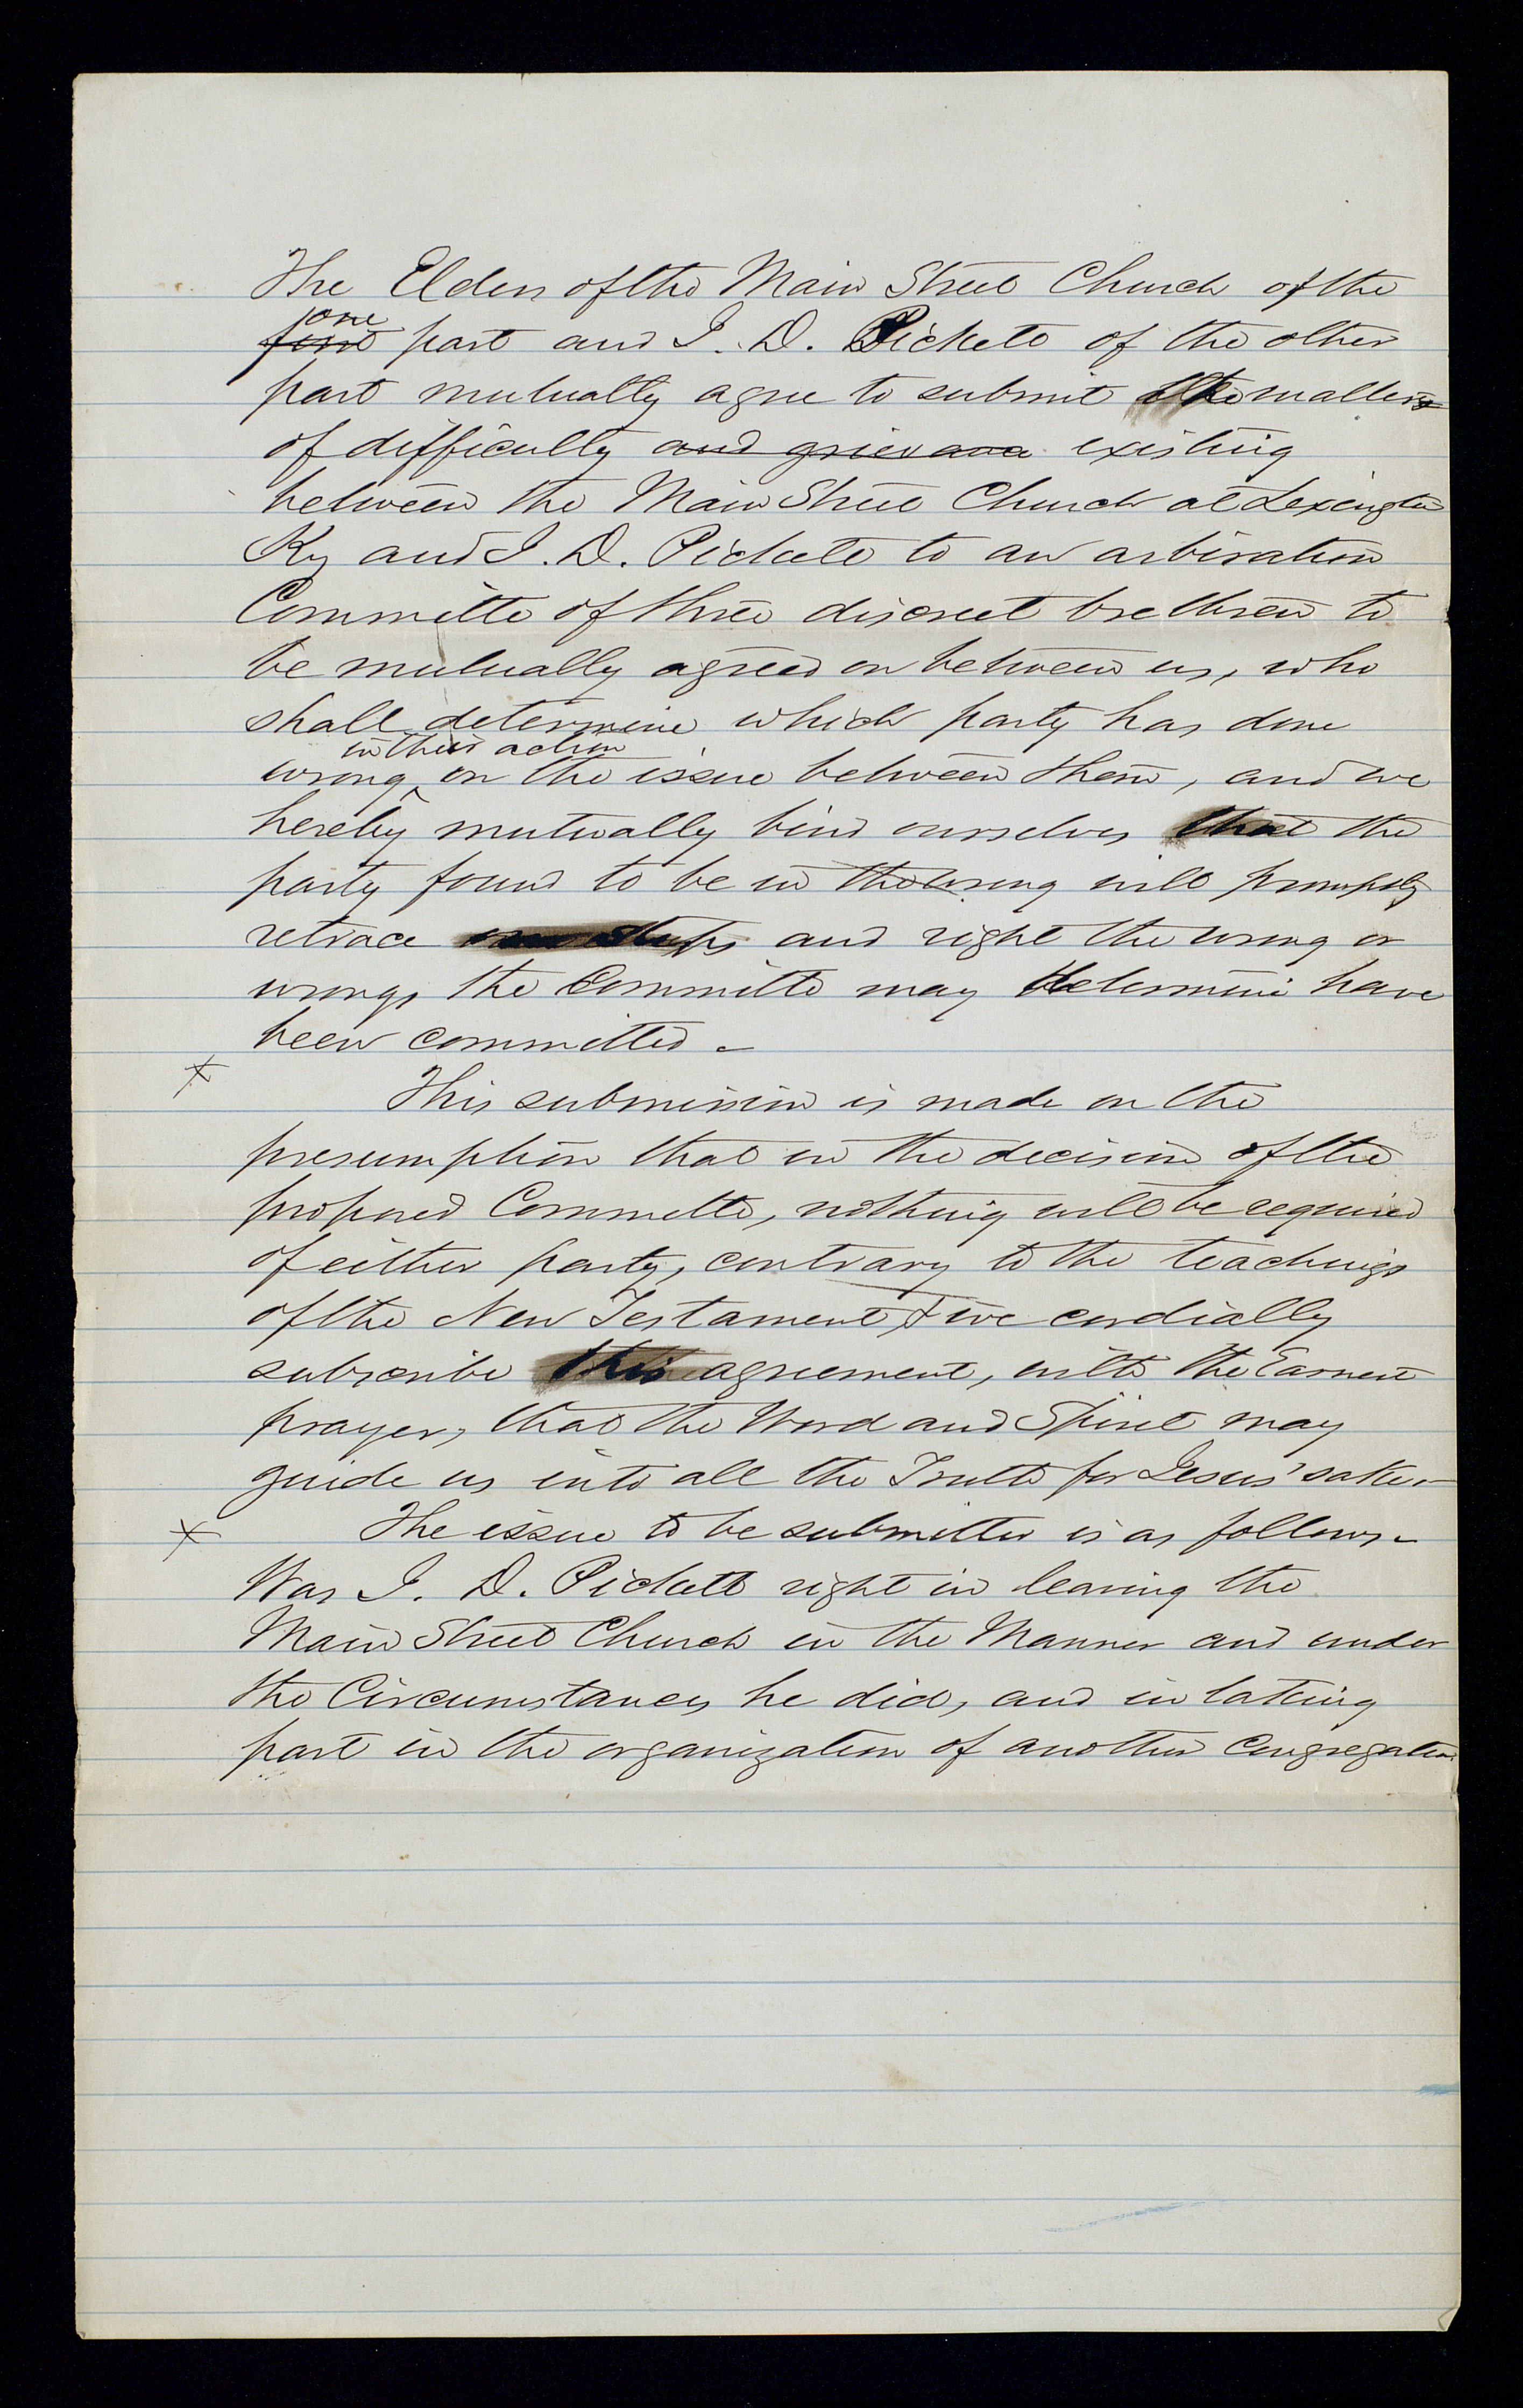 The Elders of the Main Street Church of the
one
first part and J. D. Pickett of the other
part mutually agree to submit the matters
of difficulty and grievance existing
between the Main Street Church at Lexington
Ky and J. D. Pickett to an arbiration
Committe of three discreet brethren to
be mutually agreed on between us, who
shall determine which party has done
in their action
wrong on the issue between them, and we
hereby mutually bind ourselves that the
party found to be in the wrong will promptly
retrace steps and right the wrong or
wrongs the Committe may determine have
been committed -
x This submission is made on the
presumption that in the decision of the
proposed Committe, nothing will be required
of either party, contrary to the teachings
of the New Testament, & we cordially
subscribe this agreement, with the Earnest
prayer, that the Word and Spirit may
guide us into all the Truth for Jesus' sake -
x The issue to be submitted is as follows -
Was J. D. Pickett right in leaving the
Main Street Church in the Manner and under
the Circumstances he did, and in taking
part in the organization of another Congregation